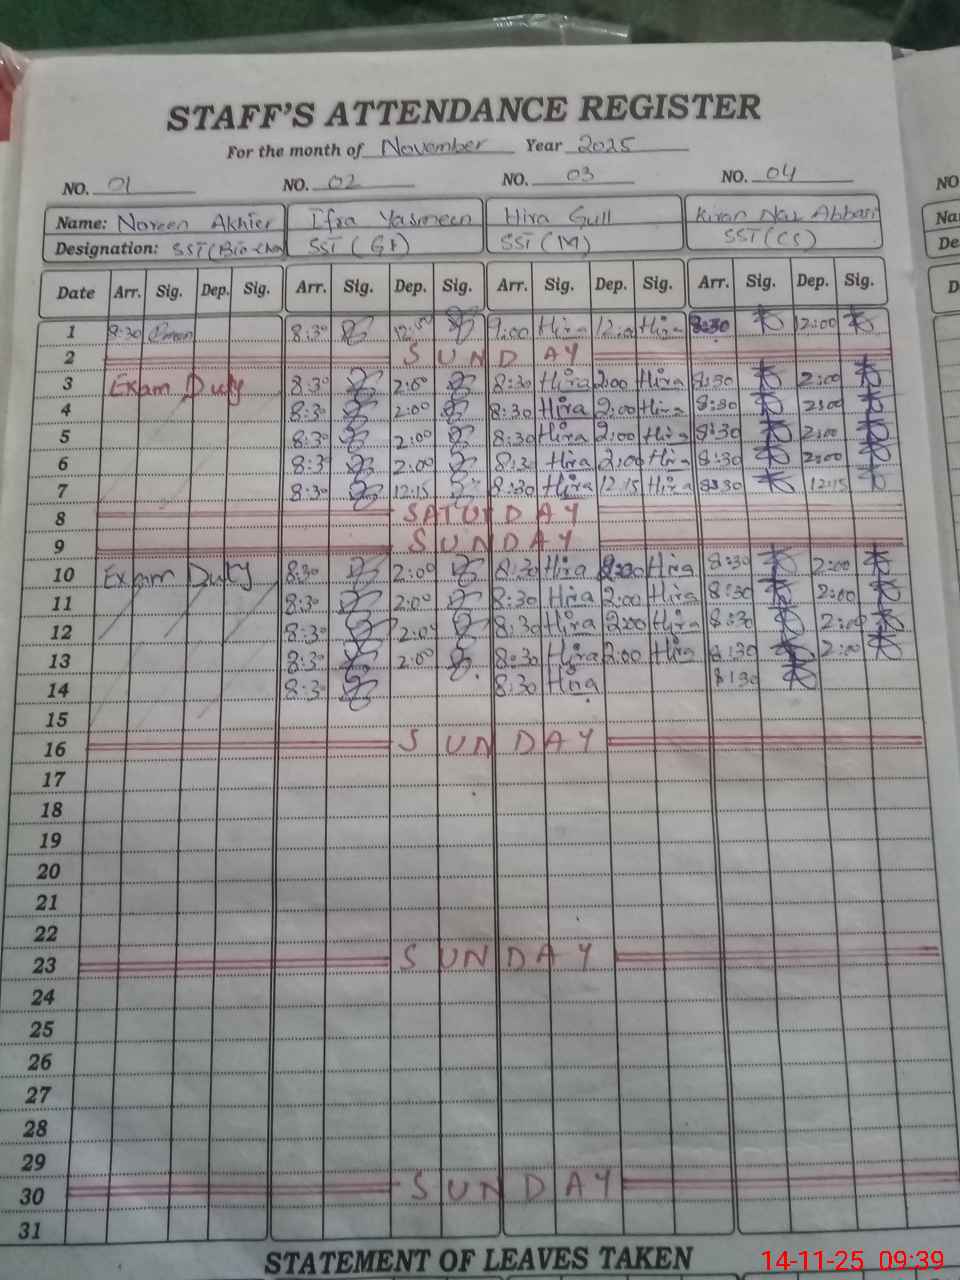 STAFF'S ATTENDANCE REGISTER
For the month of November Year 2025
NO. 01 NO. 02 NO. 03 NO. 04 NO
Name: Noreen Akhter Ifra Yasmeen Hira Gull Kiran Naz Abbasi Na
Designation: SST(Bio-Che SST (G) SST (M) SST (CS) De
Date Arr. Sig. Dep. Sig. Arr. Sig. Dep. Sig. Arr. Sig. Dep. Sig. Arr. Sig. Dep. Sig. D
1 8:30 8:30 12:00 9:00 Hira 12:00 Hira 8:30 12:00
2 SUNDAY
3 Exam Duty 8:30 2:00 8:30 Hira 2:00 Hira 8:30 2:00
4 8:30 2:00 8:30 Hira 2:00 Hira 8:30 2:00
5 8:30 2:00 8:30 Hira 2:00 Hira 8:30 2:00
6 8:30 2:00 8:30 Hira 2:00 Hira 8:30 2:00
7 8:30 12:15 8:30 Hira 12:15 Hira 8:30 12:15
8 SATUDAY
9 SUNDAY
10 Exam Duty 8:30 2:00 8:30 Hira 2:00 Hira 8:30 2:00
11 8:30 2:00 8:30 Hira 2:00 Hira 8:30 2:00
12 8:30 2:00 8:30 Hira 2:00 Hira 8:30 2:00
13 8:30 2:00 8:30 Hira 2:00 Hira 8:30 2:00
14 8:30 8:30 Hira 8:30
15
16 SUNDAY
17
18
19
20
21
22
23 SUNDAY
24
25
26
27
28
29
30 SUNDAY
31
STATEMENT OF LEAVES TAKEN
14-11-25 09:39